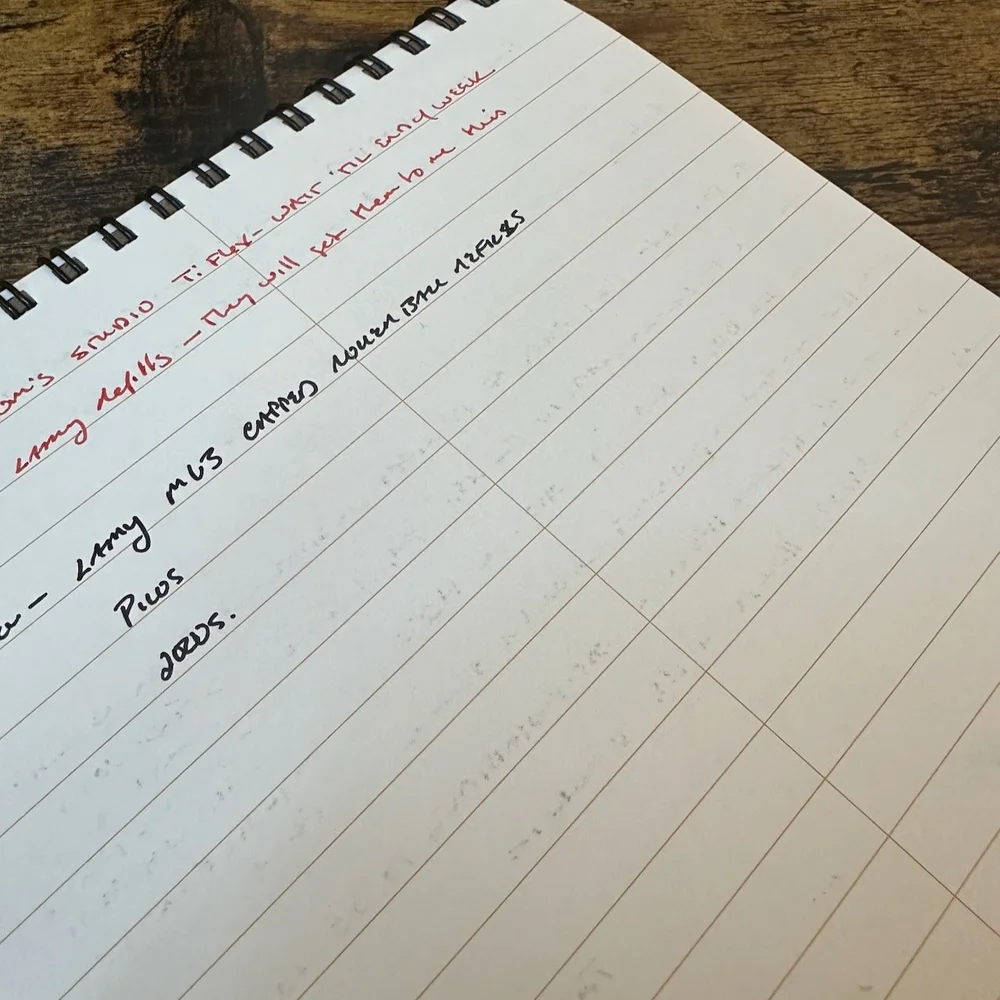 STUDIO Ti Flex - WAIT 'TIL END of WEEK
LAMY refills - They will get them to me this
- LAMY M63 CAPPED ROLLER BALL REFILLS
PILOS